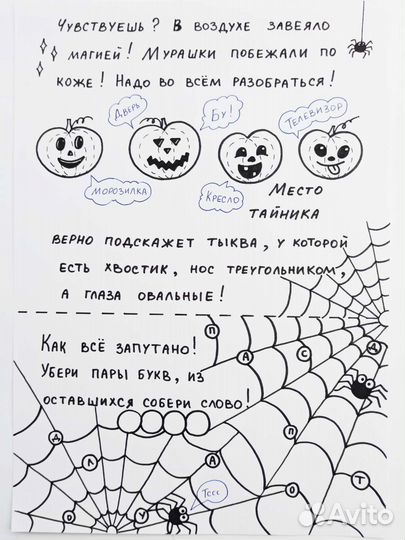 Чувствуешь? В воздухе завеяло
магией! Мурашки побежали по
коже! Надо во всём разобраться!
Дверь
Бу!
Телевизор
Морозилка
Кресло
Место
тайника
верно подскажет тыква, у которой
есть хвостик, нос треугольником,
а глаза овальные!
Как всё запутано!
Убери пары букв, из
оставшихся собери слово!
П
А
С
Д
П
Д
Л
А
Т
О
О
У
Тссс
Avito